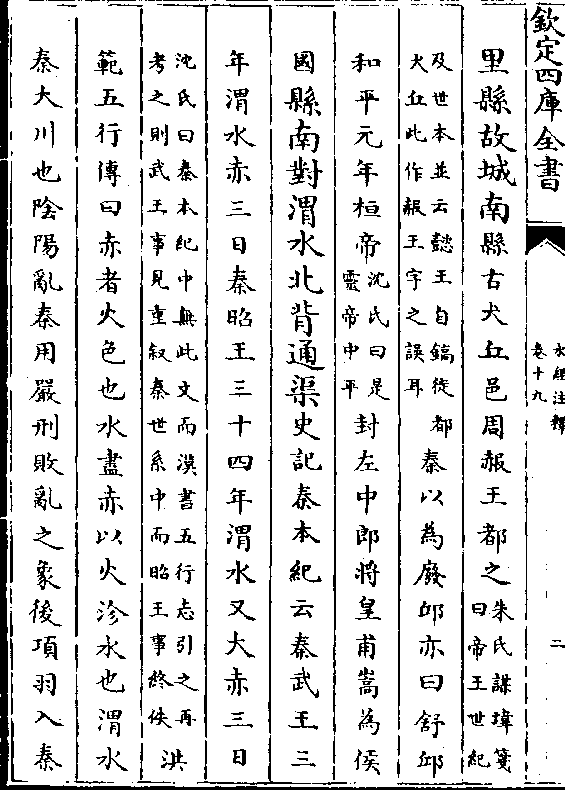 欽定四庫全書
水經注釋
卷十九
二
里縣故城南縣古犬丘邑周赧王都之
朱氏謀瑋箋
曰帝王世紀
及世本並云懿王自鎬徙都
犬丘此作赧王字之誤耳
秦以為廢邱亦曰舒邱
和平元年桓帝
沈氏曰是
靈帝中平
封左中郎將皇甫嵩為侯
國縣南對渭水北背通渠史記秦本紀云秦武王三
年渭水赤三日秦昭王三十四年渭水又大赤三日
沈氏曰秦本紀中無此文而漢書五行志引之再
考之則武王事見重叙秦世系中而昭王事終佚
洪
範五行傳曰赤者火色也水盡赤以火沴水也渭水
秦大川也陰陽亂秦用嚴刑敗亂之象後項羽入秦